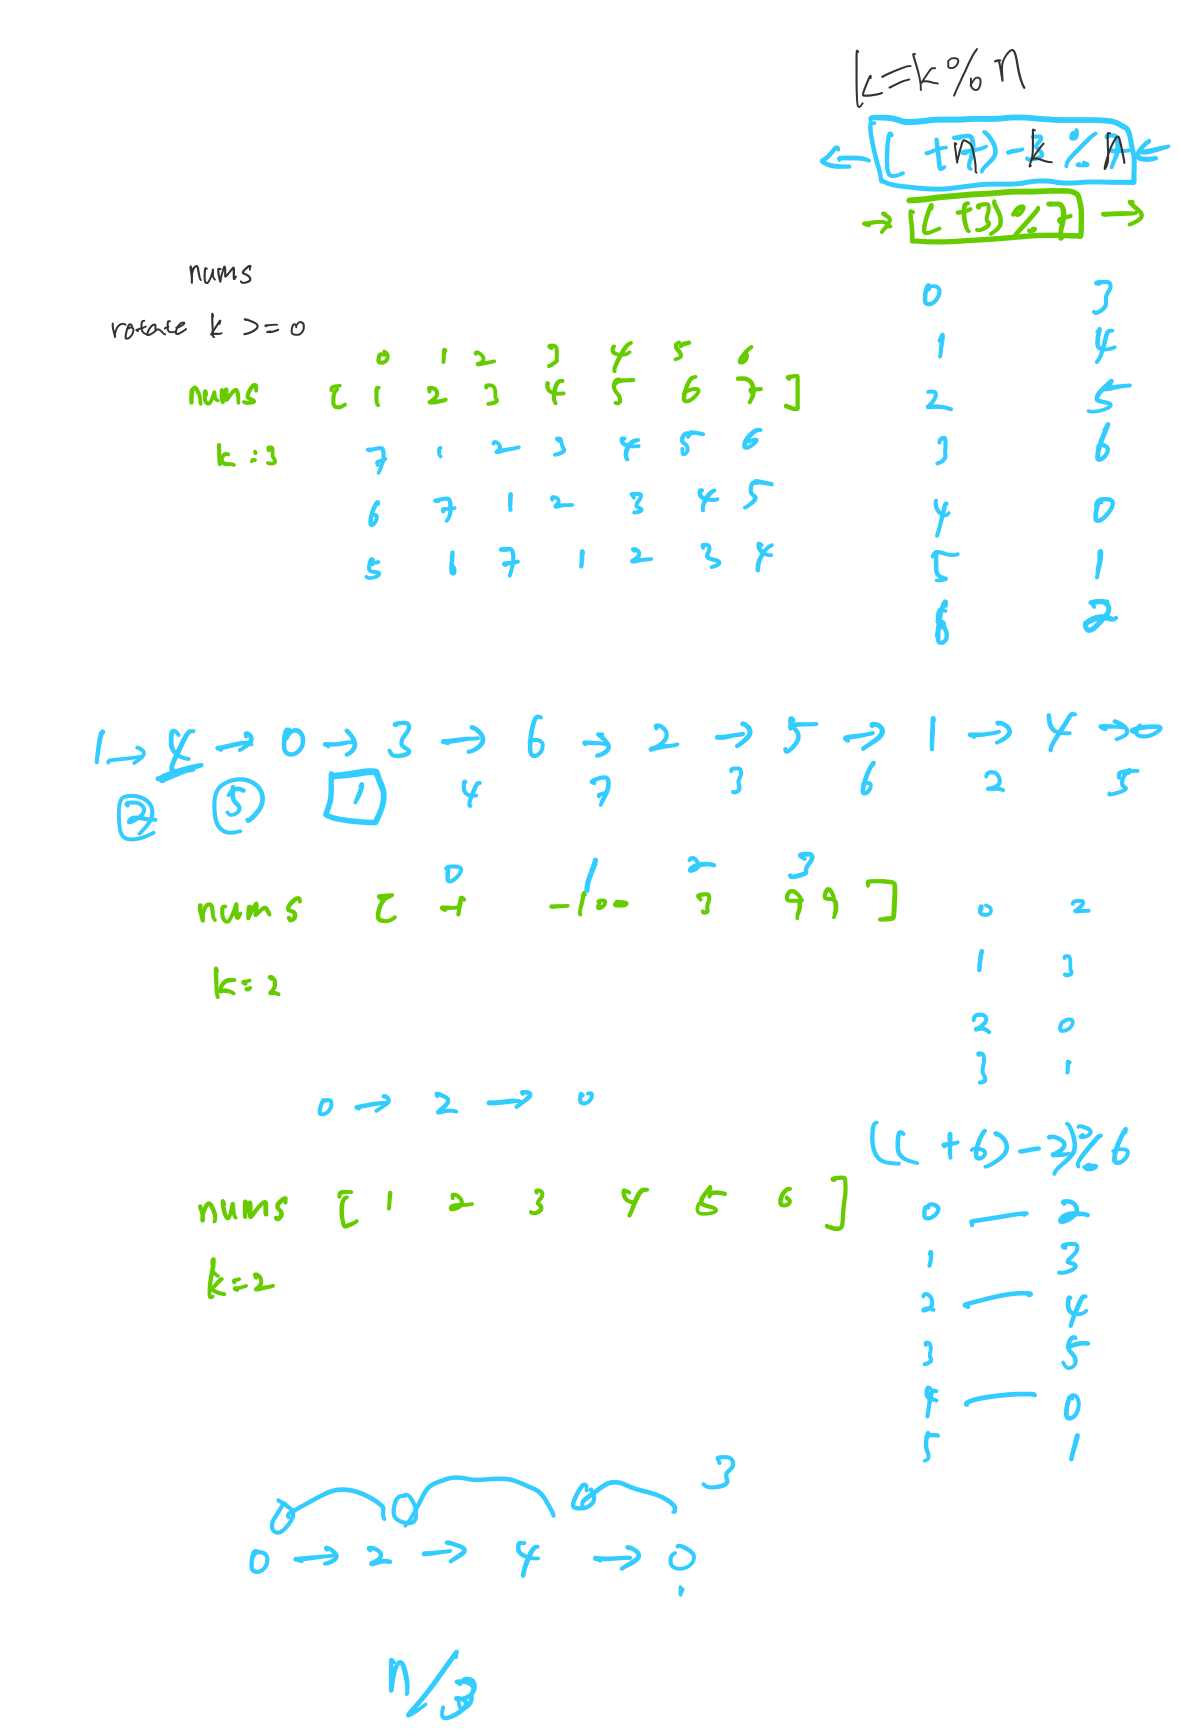 k=k%n
( +n)-k % n
[( +3)%7]
nums
rotate k >=0
0 1 2 3 4 5 6
nums [ 1 2 3 4 5 6 7 ]
k:3
7 1 2 3 4 5 6
6 7 1 2 3 4 5
5 6 7 1 2 3 4
0 3
1 4
2 5
3 6
4 0
5 1
6 2
1 → 4 → 0 → 3 → 6 → 2 → 5 → 1 → 4 → 0
2 5 1 4 7 3 6 2 5
0 1 2 3
nums [ -1 -100 3 99 ]
k=2
0 2
1 3
2 0
3 1
0 → 2 → 0
(( +6)-2)%6
nums [ 1 2 3 4 5 6 ]
k=2
0 — 2
1 3
2 — 4
3 5
4 — 0
5 1
3
0 → 2 → 4 → 0